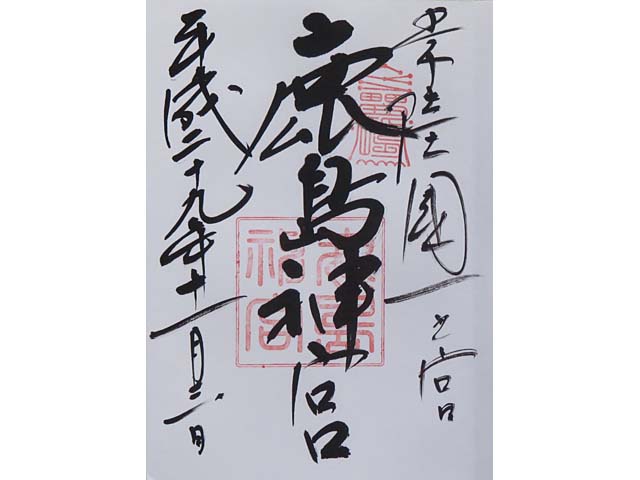 常陸國一之宮
鹿島神宮
平成二十九年十一月三日
鹿島神宮